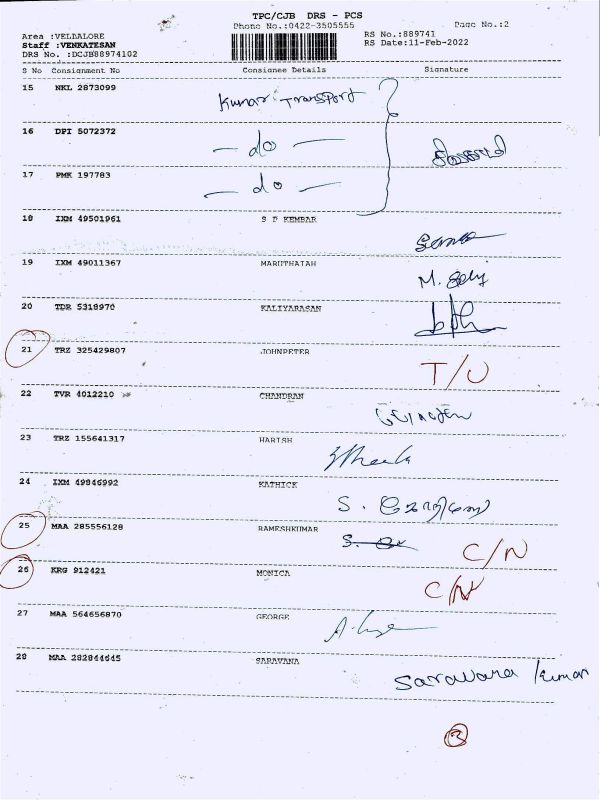 TPC/CJB DRS - PCS
Phone No.:0422-3505555
Page No.:2
Area :VELLALORE
Staff :VENKATESAN
DRS No. :DCJB88974102
RS No.:889741
RS Date:11-Feb-2022
S No Consignment No Consignee Details Signature
15 NKL 2873099 Kumar Transport
16 DPI 5072372 — do —
17 PMK 197783 — do —
18 IXM 49501961 S P KEMBAR
19 IXM 49011367 MARUTHAIAH
20 TDR 5318970 KALIYARASAN
21 TRZ 325429807 JOHNPETER T/U
22 TVR 4012210 CHANDRAN
23 TRZ 155641317 HARISH
24 IXM 49846992 KATHICK S.
25 MAA 285556128 RAMESHKUMAR C/N
26 KRG 912421 MONICA C/N
27 MAA 564656870 GEORGE
28 MAA 282844645 SARAVANA Saravana kumar